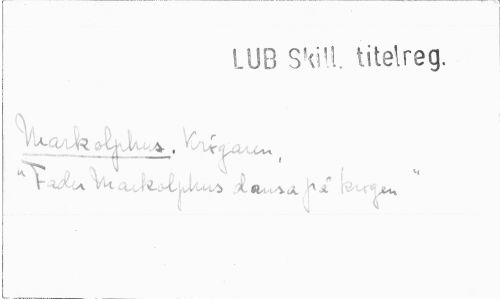 LUB Skill. titelreg.
Markolphus. Krögaren,
"Fader Markolphus dansa på krogen"